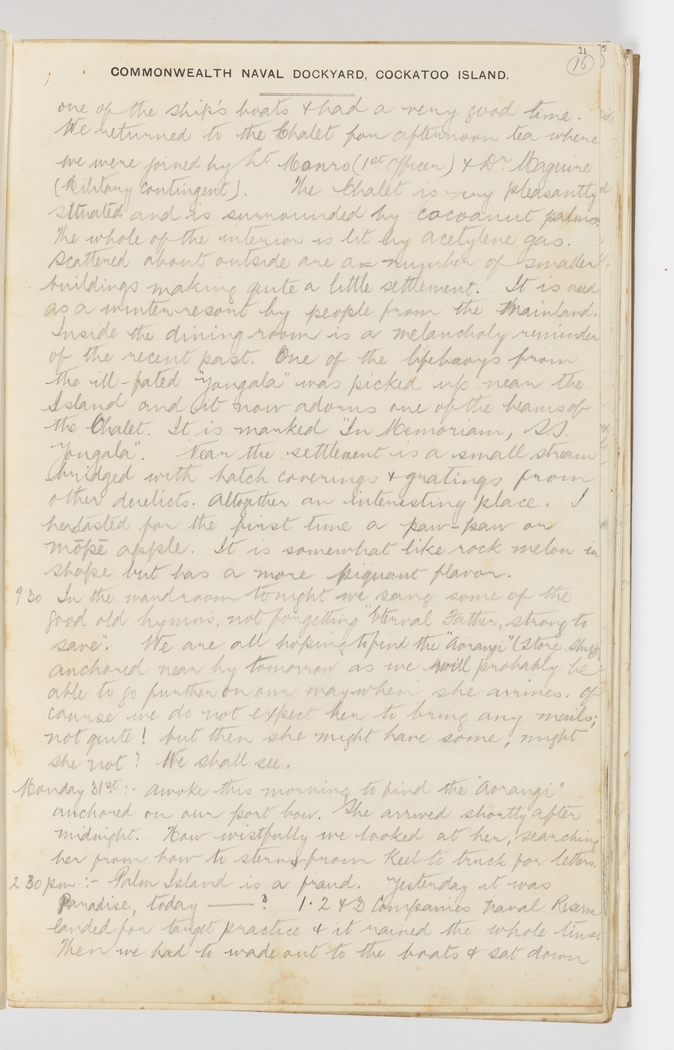 21
16
COMMONWEALTH NAVAL DOCKYARD, COCKATOO ISLAND.
one of the ship's boats & had a very good time.
We returned to the Chalet for afternoon tea where
we were joined by Lt Monro (1st officer) & Dr Maguire
(Military Contingent). The Chalet is very pleasantly
situated and is surrounded by cocoanut palms.
The whole of the interior is lit by acetylene gas.
Scattered about outside are a number of smaller
buildings making quite a little settlement. It is used
as a winter resort by people from the Mainland.
Inside the dining room is a melancholy reminder
of the recent past. One of the lifebuoys from
the ill-fated "Yongala" was picked up near the
Island and it now adorns one of the beams of
the Chalet. It is marked "In Memoriam, S.S.
Yongala". Near the settlement is a small stream
bridged with hatch coverings & gratings from
other derelicts. Altogether an interesting place. I
here tasted for the first time a paw-paw or
mōpē apple. It is somewhat like rock melon in
shape but has a more piquant flavor.
9 30 In the wardroom tonight we sang some of the
good old hymns, not forgetting "Eternal Father, strong to
save". We are all hoping to find the "Aorangi" (Store Ship)
anchored near by tomorrow as we will probably be
able to go further on our way when she arrives. Of
course we do not expect her to bring any mails;
not quite! but then she might have some, might
she not? We shall see.
Monday 31st:- Awoke this morning to find the "Aorangi"
anchored on our port bow. She arrived shortly after
midnight. How wistfully we looked at her, searching
her from bow to stern & from keel to truck for letters.
2 30 pm:- Palm Island is a fraud. Yesterday it was
Paradise, today —— ? 1. 2 & 3 Companies Naval Reserve
landed for target practice & it rained the whole time.
Then we had to wade out to the boats & sat down